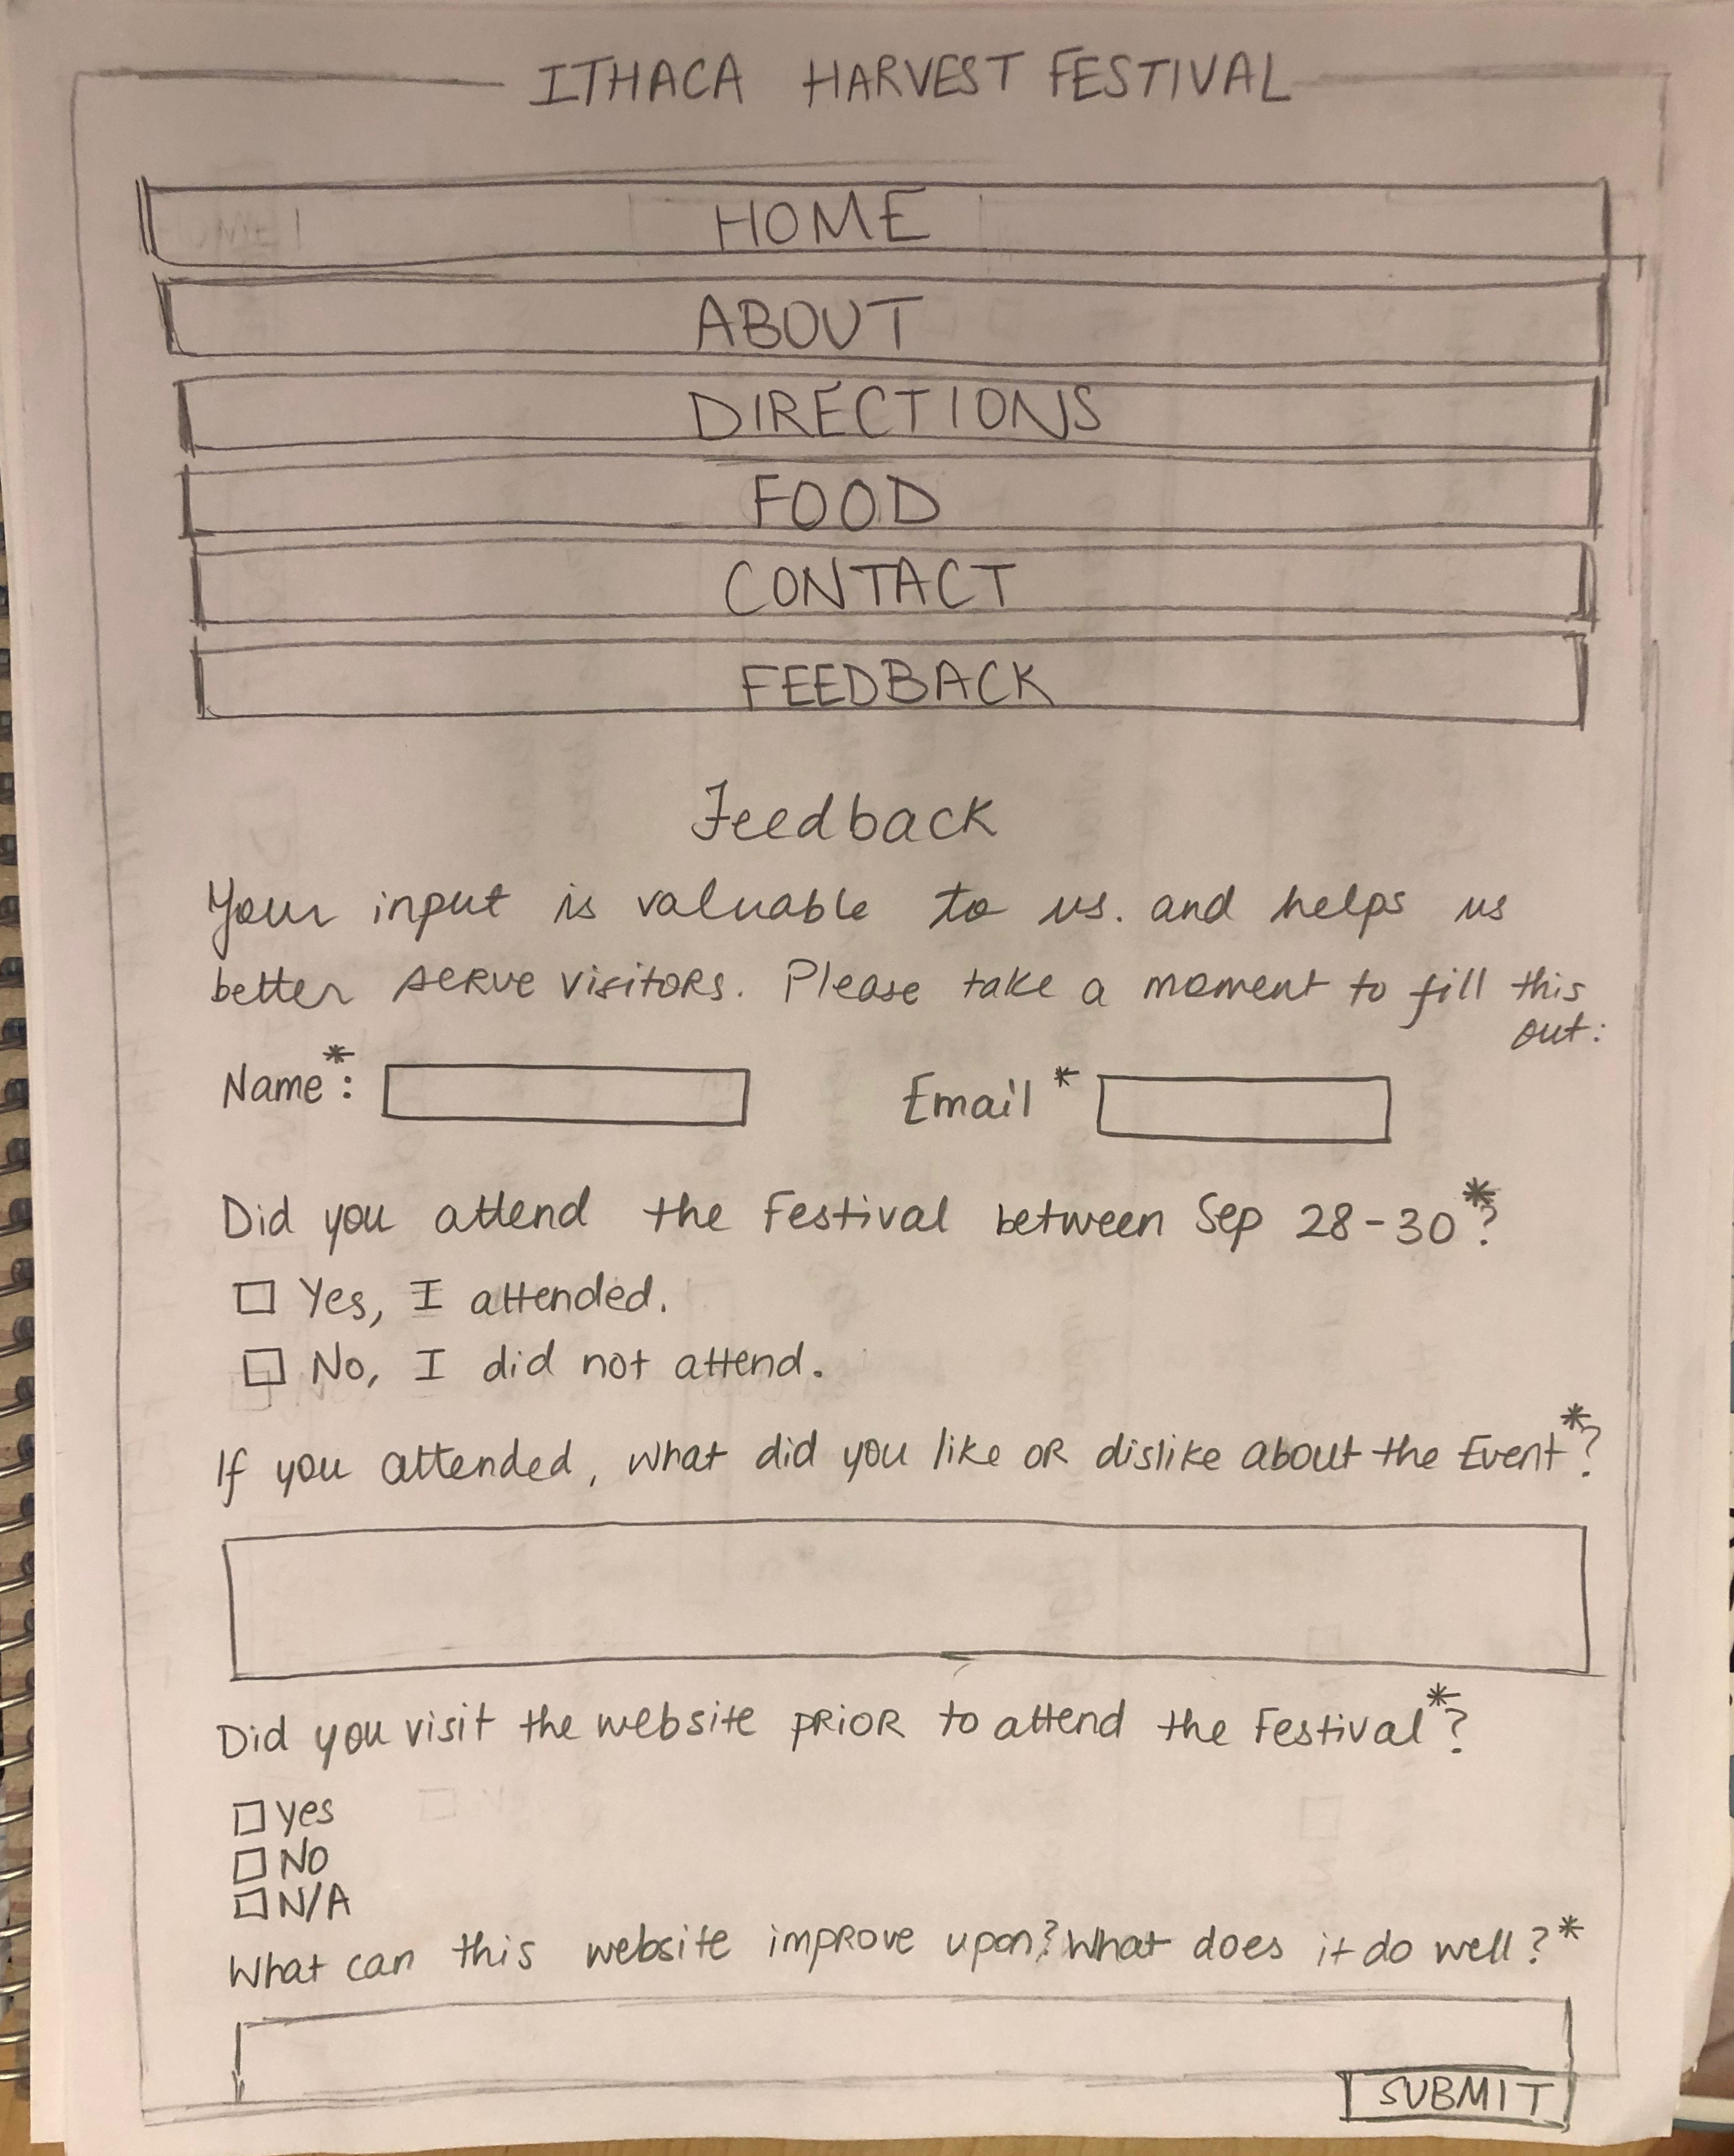 ITHACA HARVEST FESTIVAL
HOME
ABOUT
DIRECTIONS
FOOD
CONTACT
FEEDBACK
Feedback
Your input is valuable to us. and helps us
better serve visitors. Please take a moment to fill this
out:
Name*: Email *
Did you attend the Festival between Sep 28-30*?
Yes, I attended.
No, I did not attend.
If you attended, what did you like OR dislike about the Event*?
Did you visit the website PRIOR to attend the Festival*?
Yes
No
N/A
What can this website improve upon? What does it do well?*
SUBMIT